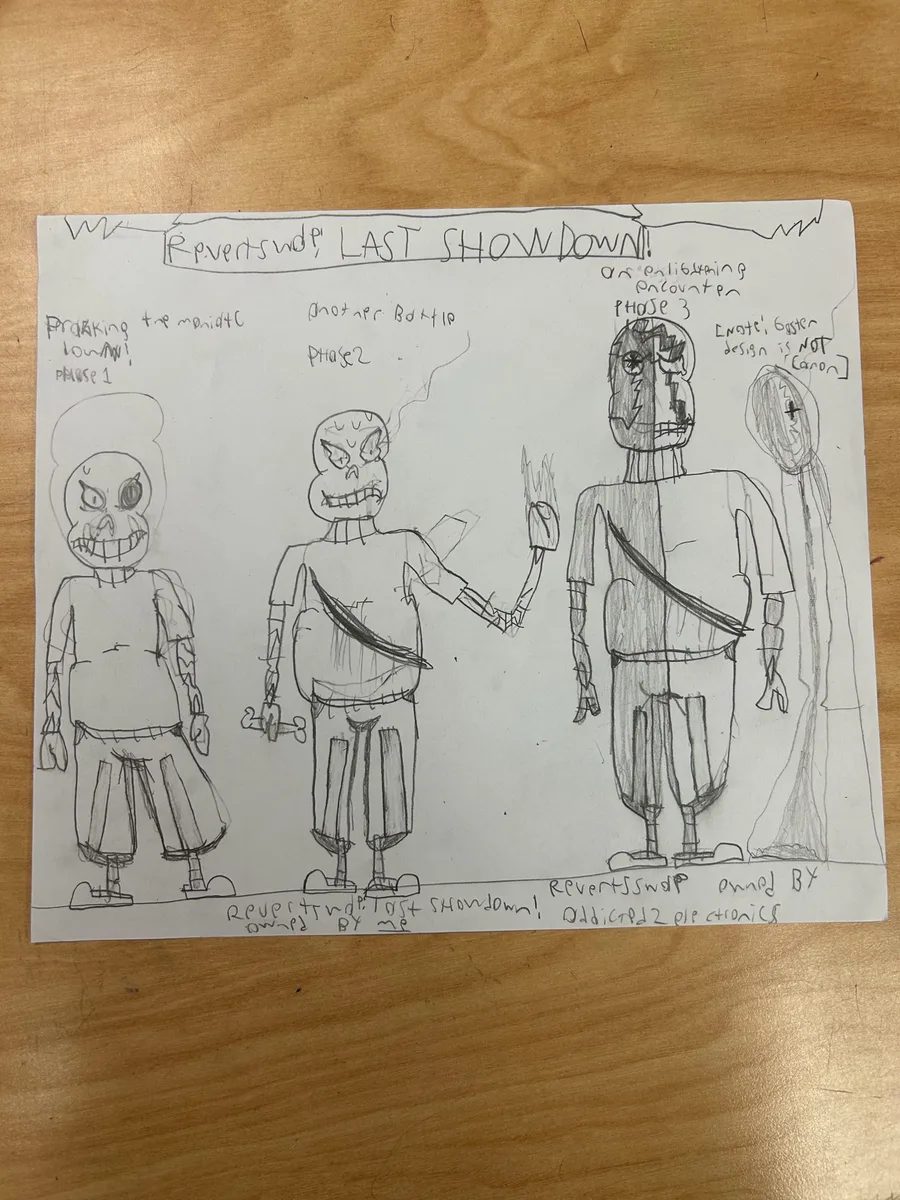 Revertswap! LAST SHOWDOWN!
an enlightening
encounter
PHASE 3
Another Battle
PHASE 2
the maniatC
PHASE 1
[NOTE! Gaster
design is NOT
Canon]
Revertswap: last SHOWDOWN!
owned BY me
Revertsswap owned BY
addicted2electronics